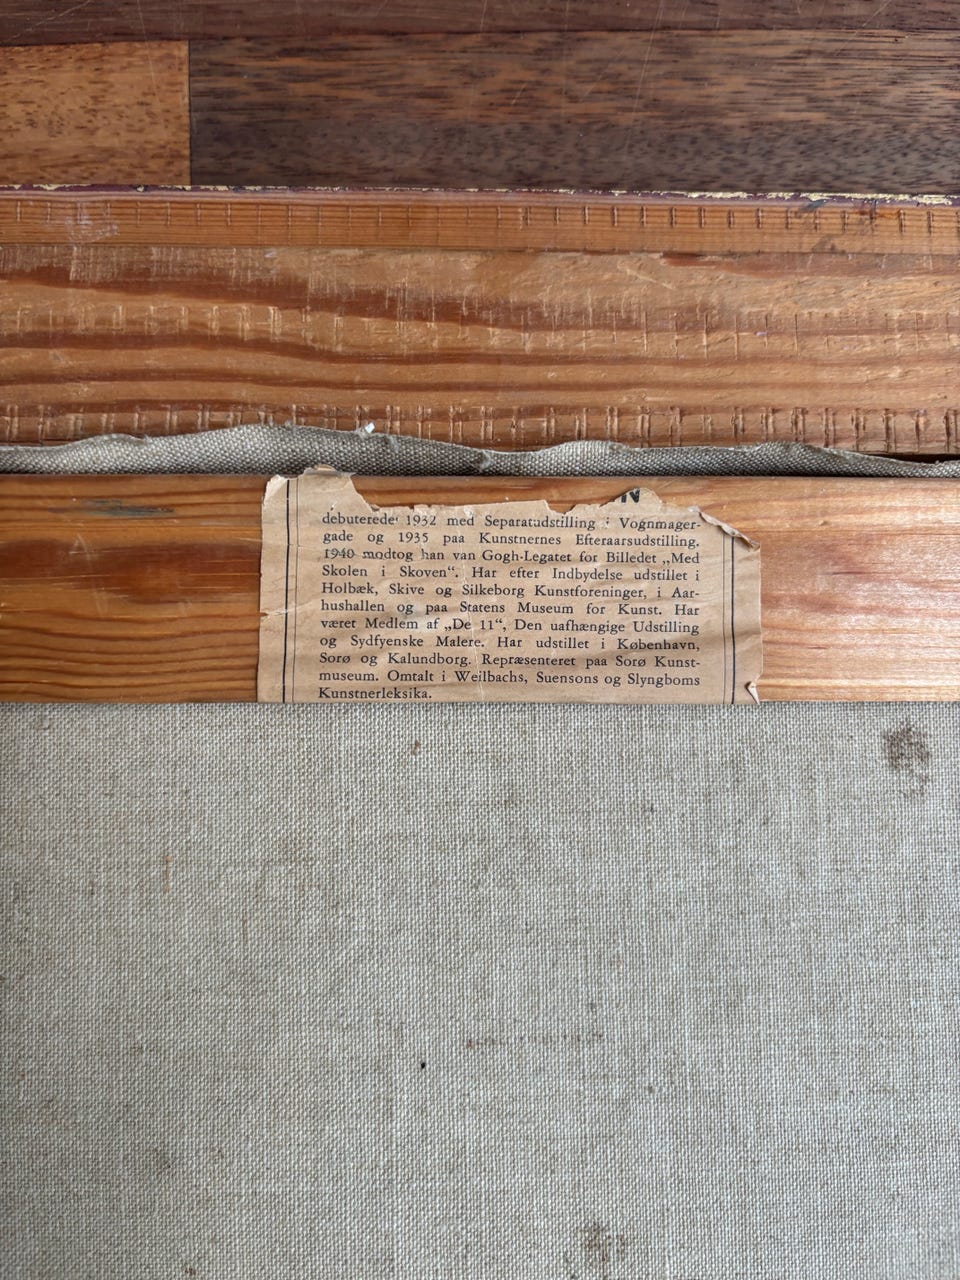 N
debuterede 1932 med Separatudstilling i Vognmager-
gade og 1935 paa Kunstnernes Efteraarsudstilling.
1940 modtog han van Gogh-Legatet for Billedet „Med
Skolen i Skoven“. Har efter Indbydelse udstillet i
Holbæk, Skive og Silkeborg Kunstforeninger, i Aar-
hushallen og paa Statens Museum for Kunst. Har
været Medlem af „De 11“, Den uafhængige Udstilling
og Sydfyenske Malere. Har udstillet i København,
Sorø og Kalundborg. Repræsenteret paa Sorø Kunst-
museum. Omtalt i Weilbachs, Suensons og Slyngboms
Kunstnerleksika.